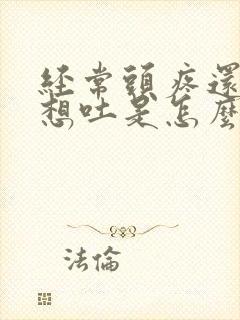 經常頭疼還
想吐是怎麼
法倫